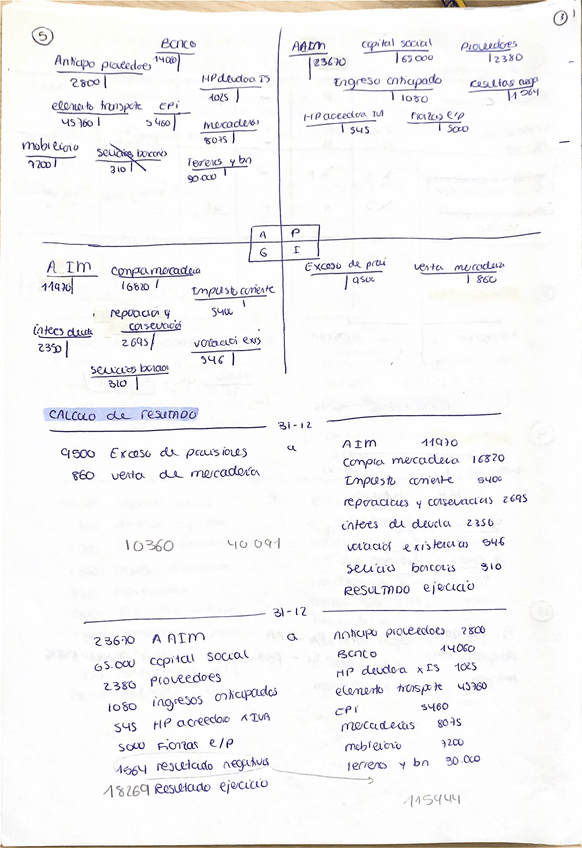 5
1
Banco
14060
Anticipo proveedores
2800
HP deudora IS
1025
elemento transporte
45760
EPI
5460
mercaderías
8075
mobiliario
7200
servicios bancario
310
Terrenos y bn
30.000
AAIM
23670
capital social
65000
Proveedores
2380
Ingreso anticipado
1080
HP acreedora IVA
545
Fianzas e/p
5000
A P
G I
A IM
11970
compra mercaderia
16820
Impuesto corriente
5400
reparación y
conservación
2695
interes deuda
2350
variació exis
546
servicios bancari
310
Exceso de provi
9500
venta mercaderia
860
CALCULO de RESULTADO
31-12
9500 Exceso de provisiones a
860 venta de mercadería
AIM 11970
Compra mercaderia 16820
Impuesto corriente 5400
reparaciones y conservacias 2695
interes de deuda 2350
variació existencias 546
servicio bancarios 310
RESULTADO ejercicio
10360 40 091
31-12
23670 A AIM a
65.000 capital social
2380 proveedores
1080 ingresos anticipados
545 HP acreedora x IVA
5000 Fianzas e/P
resultado negativo
18269 Resultado ejercicio
Anticipo proveedores 2800
Banco 14060
HP deudora x IS 1025
elemento transporte 45760
EPI 5460
mercaderias 8075
mobiliario 7200
Terrenos y bn 30.000
115444